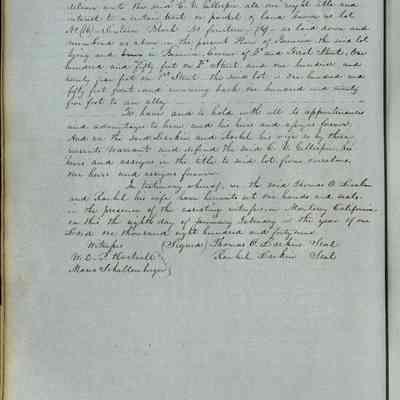 deliver unto the said C. V. Gillespie all our right title and
interest to a certain tract or parcel of land known as lot
No (16) sixteen Block No fourteen (14) as laid down and
numbered as above in the present Plan of Benicia the said lot
lying and being in Benicia, corner of D and First Streets, One
hundred and fifty feet on D Street and one hundred and
ninety five feet on 1st Street the said lot is One hundred and
fifty feet front and running back one hundred and ninety
five feet to an alley
To have and to hold with all its appurtenances
and advantages to him and his heirs and assigns forever.
And we the said Larkin and Rachel his wife do by these
presents Warrant and defend the said C. V. Gillespie his
heirs and assigns in the title to said lot from ourselves
Our heirs and assigns forever
In testimony whereof, we the said Thomas O. Larkin
and Rachel his wife have hereunto set our hands and seals.
in the presence of the existing witnesses in Monterey California
on this the eighth day of January in the year of our
Lord one thousand eight hundred and forty nine
Witness (Signed) Thomas O. Larkin Seal
W. E. P. Hartnell Rachel Larkin Seal
Schallenberger